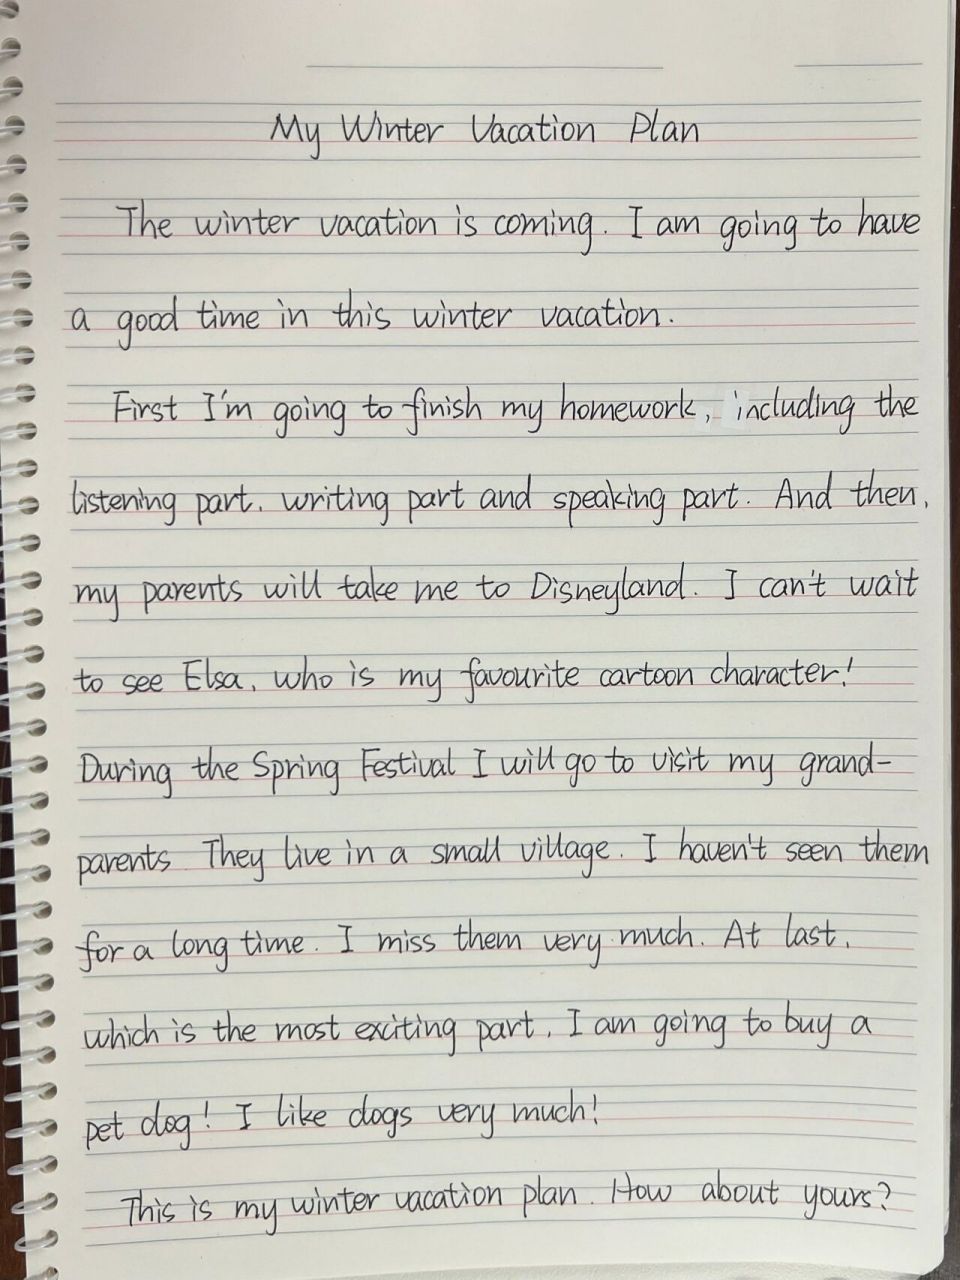 My Winter Vacation Plan
The winter vacation is coming. I am going to have
a good time in this winter vacation.
First I'm going to finish my homework, including the
listening part, writing part and speaking part. And then,
my parents will take me to Disneyland. I can't wait
to see Elsa, who is my favourite cartoon character!
During the Spring Festival I will go to visit my grand-
parents They live in a small village. I haven't seen them
for a long time. I miss them very much. At last,
which is the most exciting part, I am going to buy a
pet dog! I like dogs very much!
This is my winter vacation plan. How about yours?